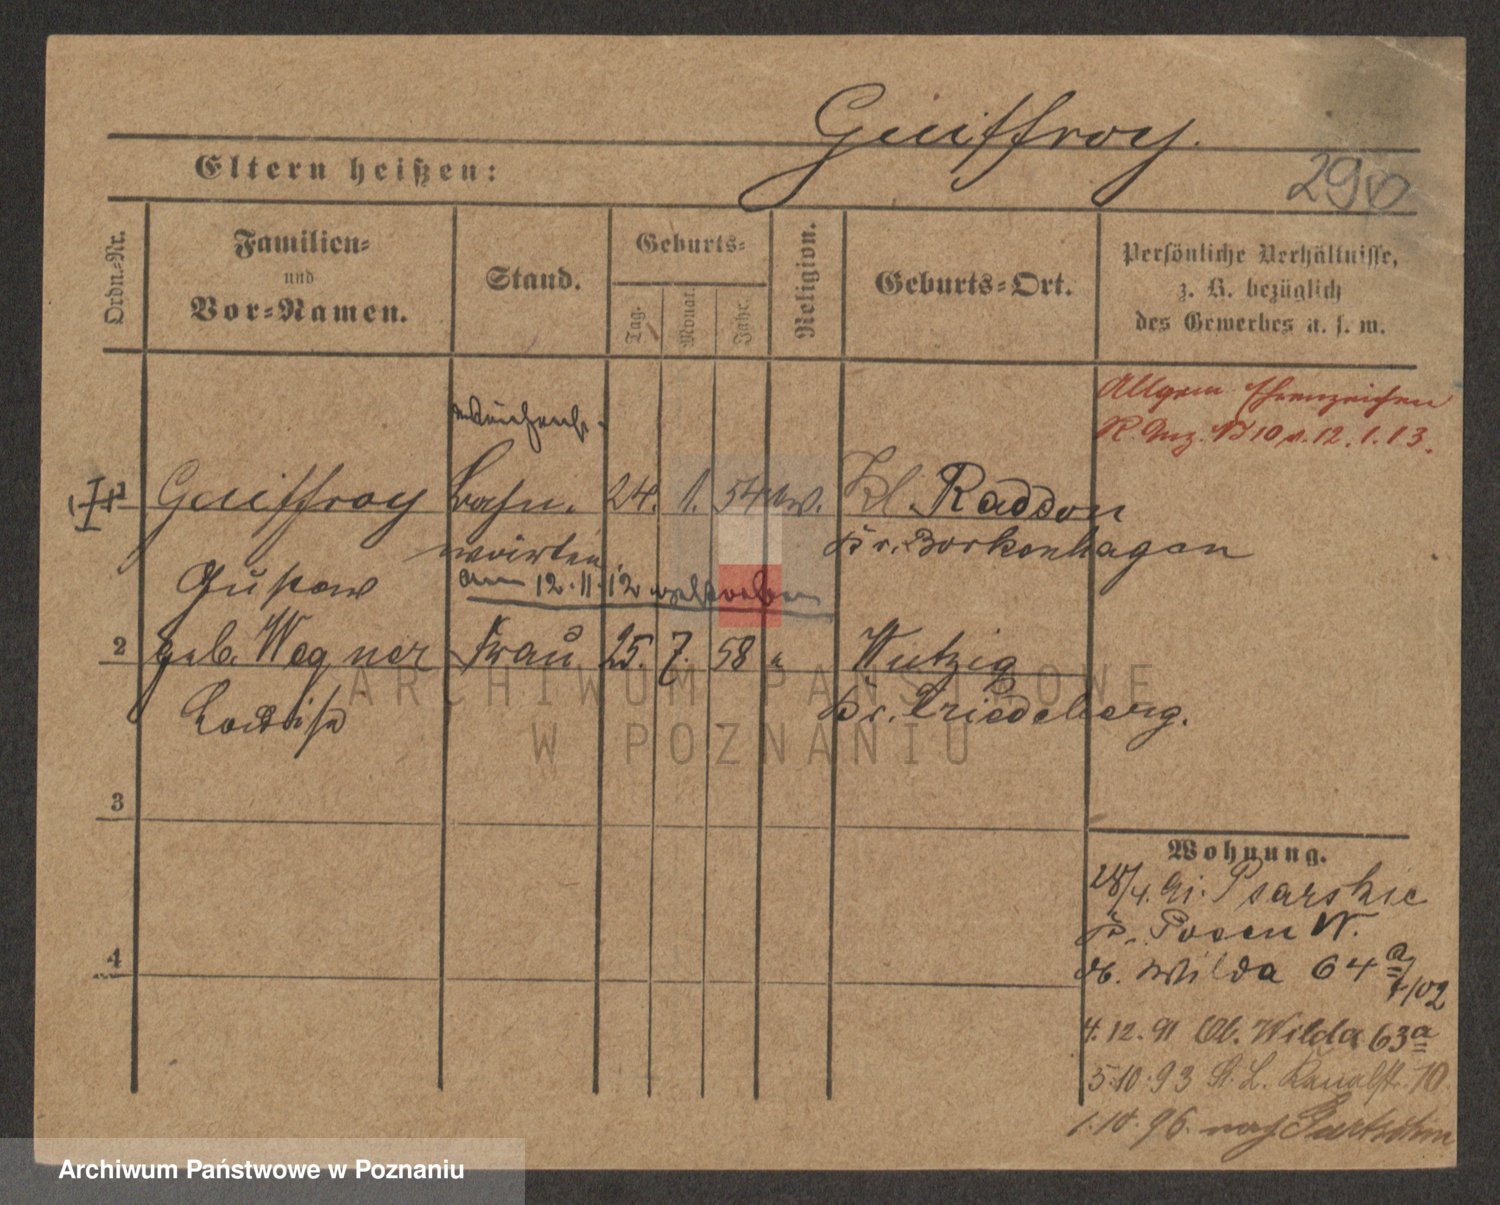 Geiffroy.
Eltern heißen:
290
Ordn.-Nr.
Familien-
und
Vor-Namen.
Stand.
Geburts-
Tag.
Monat
Jahr.
Religion.
Geburts-Ort.
Persönliche Verhältnisse,
z. B. bezüglich
des Gewerbes u. s. w.
Allgem Ehrenzeichen
R. Anz. No 10 v. 12. 1. 13.
Geiffroy Bahn- 24. 1. 54 ev. Kl. Raddow
wärter Kr. Borkenhagen
Gustav
am 12.11.12 verstorben
2 geb. Wegner Frau 25. 7. 58 " Wutzig
Louise Kr. Friedeberg.
3
Wohnung.
28/4. Psarskie
Kr. Posen W.
4
Ob. Wilda 64 a
7/02
4.12.91 Ob. Wilda 63a
5.10.93 St. L. Kanalstr. 10.
1.10.96. nach
ARCHIWUM PAŃSTWOWE
W POZNANIU
Archiwum Państwowe w Poznaniu